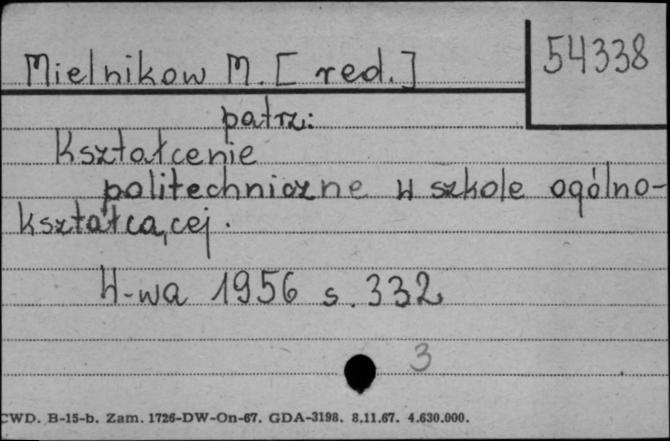 Mielnikow M. [red.]
54338
patrz:
Kształcenie
politechniczne w szkole ogólno-
kształcącej.
W-wa 1956 s. 332
3
CWD. B-15-b. Zam. 1726-DW-On-67. GDA-3198. 8.11.67. 4.630.000.